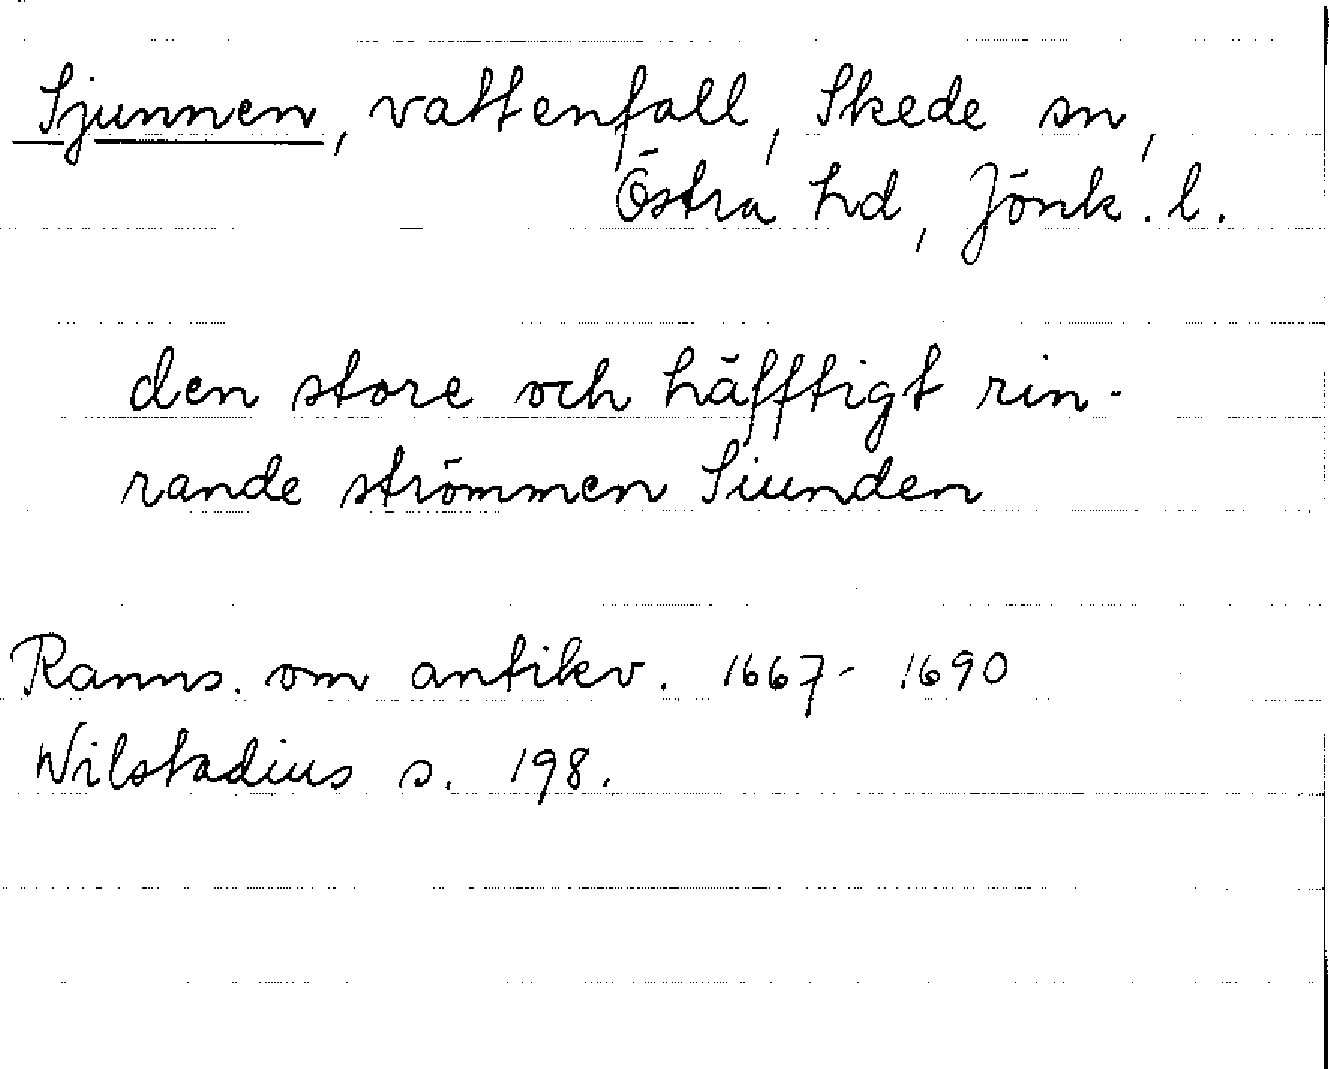 Sjunnen, vattenfall, Skede sn,
Östra hd, Jönk. l.
den store och häfftigt rin-
rande strömmen Siunden
Ranns. om antikv. 1667- 1690
Wilstadius s. 198.